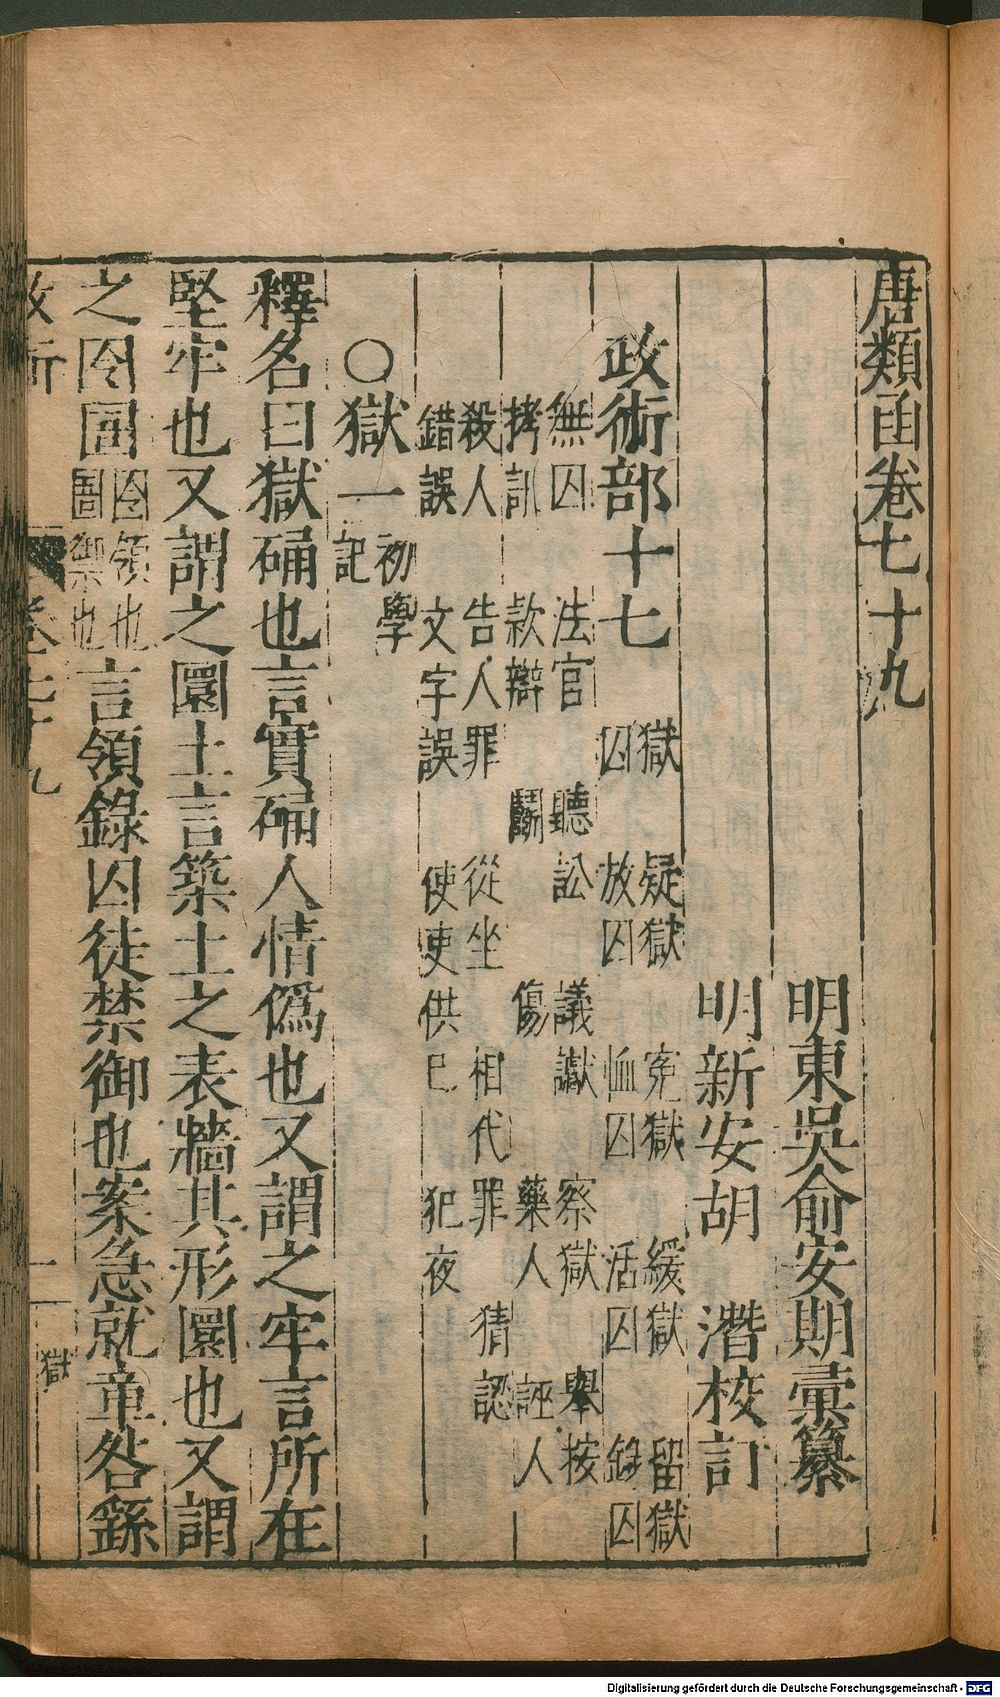 唐類函卷七十九
明東吳俞安期彙纂
明新安胡　潛校訂
政術部十七　獄　疑獄　寃獄　緩獄　留獄
囚　放囚　恤囚　活囚　錄囚
無囚　法官　聽訟　議讞　察獄　舉按
拷訊　款辯　鬭　傷　藥人　誣人
殺人　告人罪　從坐　相代罪　猜認
錯誤　文字誤　使吏供已　犯夜
○獄一初學記
釋名曰獄确也言實确人情僞也又謂之牢言所在
堅牢也又謂之圜土言築土之表牆其形圜也又謂
之囹圄囹領也圄禦也言領錄囚徒禁御也案急就章咎繇
政術
卷七十九
一
獄
Digitalisierung gefördert durch die Deutsche Forschungsgemeinschaft - DFG